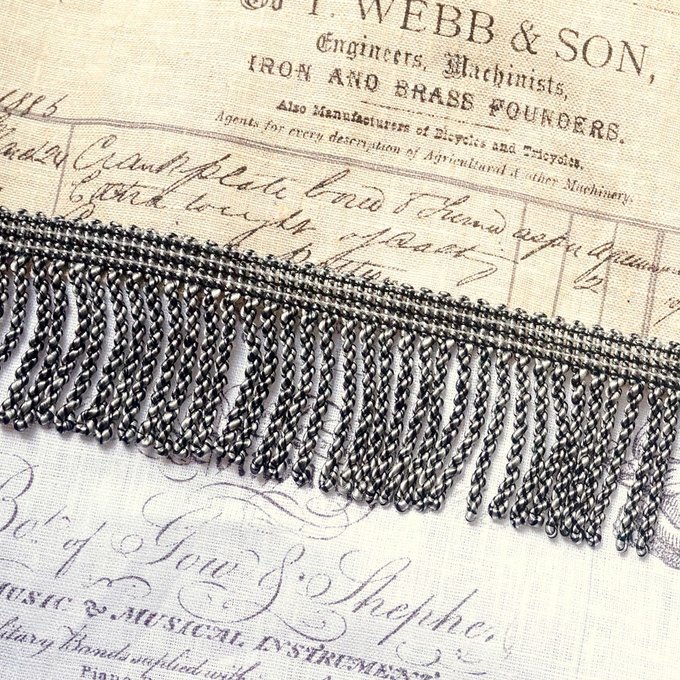 T. WEBB & SON,
Engineers, Machinists,
IRON AND BRASS FOUNDERS.
Also Manufacturers of Bicycles and Tricycles.
Agents for every description of Agricultural & other Machinery.
1885
Crank plate bored & turned as per
Extra weight of
Bot. of Gow & Shephe
MUSIC & MUSICAL INSTRUMENT
litary Bands supplied with
Piano